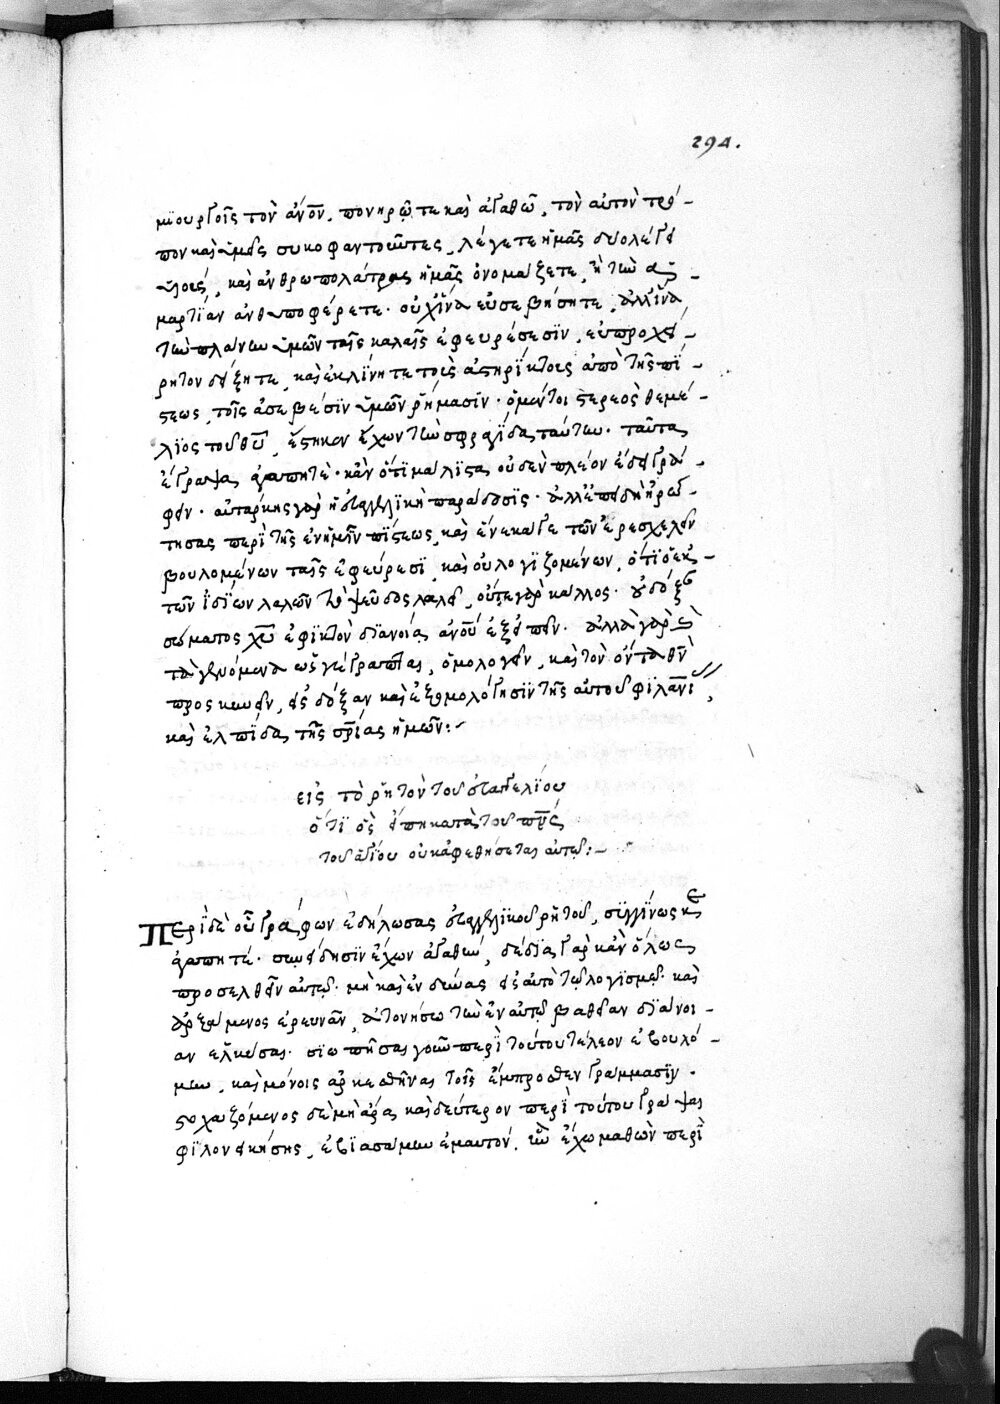 294.
μϊουργοῖς τὸν ἄνον, πονηρῶ τε καὶ ἀγαθῶ, τὸν αὐτὸν τρό-
πον καὶ ὑμεῖς συκοφαντοῦντες, λέγετε ἡμᾶς δύο λέγειν
υἱούς, καὶ ἀνθρωπολάτρας ἡμᾶς ὀνομάζετε, ἢ τὴν ἁ-
μαρτίαν ἀνθυποφέρετε. οὐχ ἵνα εὐσεβήσητε, ἀλλ' ἵνα
τὴν πλάνην ὑμῶν ταῖς καλαῖς ἐφευρέσεσϊν, εὐπροχώ-
ρητον δείξητε, καὶ ἐκκλίνητε τοὺς ἀστηρίκτους ἀπὸ τῆς πί-
στεως, τοῖς ἀσεβέσϊν ὑμῶν ῥήμασϊν. ὁ μέντοι στερεὸς θεμέ-
λϊος τοῦ θῦ, ἕστηκεν ἔχων τὴν σφραγῖδα ταύτην. ταῦτα
ἔγραψα ἀγαπητέ. κἂν ὅτϊ μάλϊστα οὐδὲν πλέον ἔδει γρά-
φειν. αὐτάρκης γὰρ ἡ εὐαγγελϊκὴ παράδοσϊς. ἀλλ' ἐπειδὴ ἠρώ-
τησας περὶ τῆς ἐν ἡμῖν πίστεως, καὶ ἕνεκά γε τῶν ἐρεσχελεῖν
βουλομένων ταῖς ἐφεύρεσϊ, καὶ οὐ λογϊζομένων, ὅτϊ ὁ ἐκ
τῶν ἰδίων λαλῶν τὸ ψεῦδος λαλεῖ, οὔτε γὰρ κάλλος
σώματος χῦ ἐφϊκτὸν δϊανοία ἀνοῦ ἐξειπεῖν. ἀλλὰ γὰρ
τὰ γενόμενα ὡς γέγραπται, ὁμολογεῖν, καὶ τὸν ὄντα θν
προσκυνεῖν, εἰς δόξαν καὶ ἐξομολόγησϊν τῆς αὐτοῦ φϊλανίας,
καὶ ἐλπίδα τῆς σρίας ἡμῶν:~
εἰς τὸ ῥητὸν τοῦ εὐαγγελίου
ὅτϊ ὃς εἴπη κατὰ τοῦ πνς
τοῦ ἁγίου οὐκ ἀφεθήσεται αὐτῷ:~
Περὶ δὲ οὗ γράφων ἐδήλωσας εὐαγγελϊκοῦ ῥητοῦ, σύγγίνωσκε
ἀγαπητέ. συνείδησϊν ἔχων ἀγαθὴν, δέδϊα γὰρ κἂν ὅλως
προσελθεῖν αὐτῷ. μὴ καὶ ἐνδεύσας εἰς αὐτὸ τῷ λογϊσμῷ. καὶ
ἀρξάμενος ἐρευνᾶν, ἀτονήσω τὴν ἐν αὐτῷ βαθεῖαν δϊάνοι-
αν ἑλκύσας. σϊωπῆσαι γοῦν περὶ τούτου τέλεον ἐβουλό-
μην, καὶ μόνοις ἀρκεσθῆναι τοῖς ἔμπροσθεν γράμμασϊν.
στοχαζόμενος δὲ μὴ ἄρα καὶ δεύτερον περὶ τούτου γράψαι
φϊλονεικήσης, ἐβϊασάμην ἐμαυτὸν, ἣν ἔχω μαθὼν περὶ